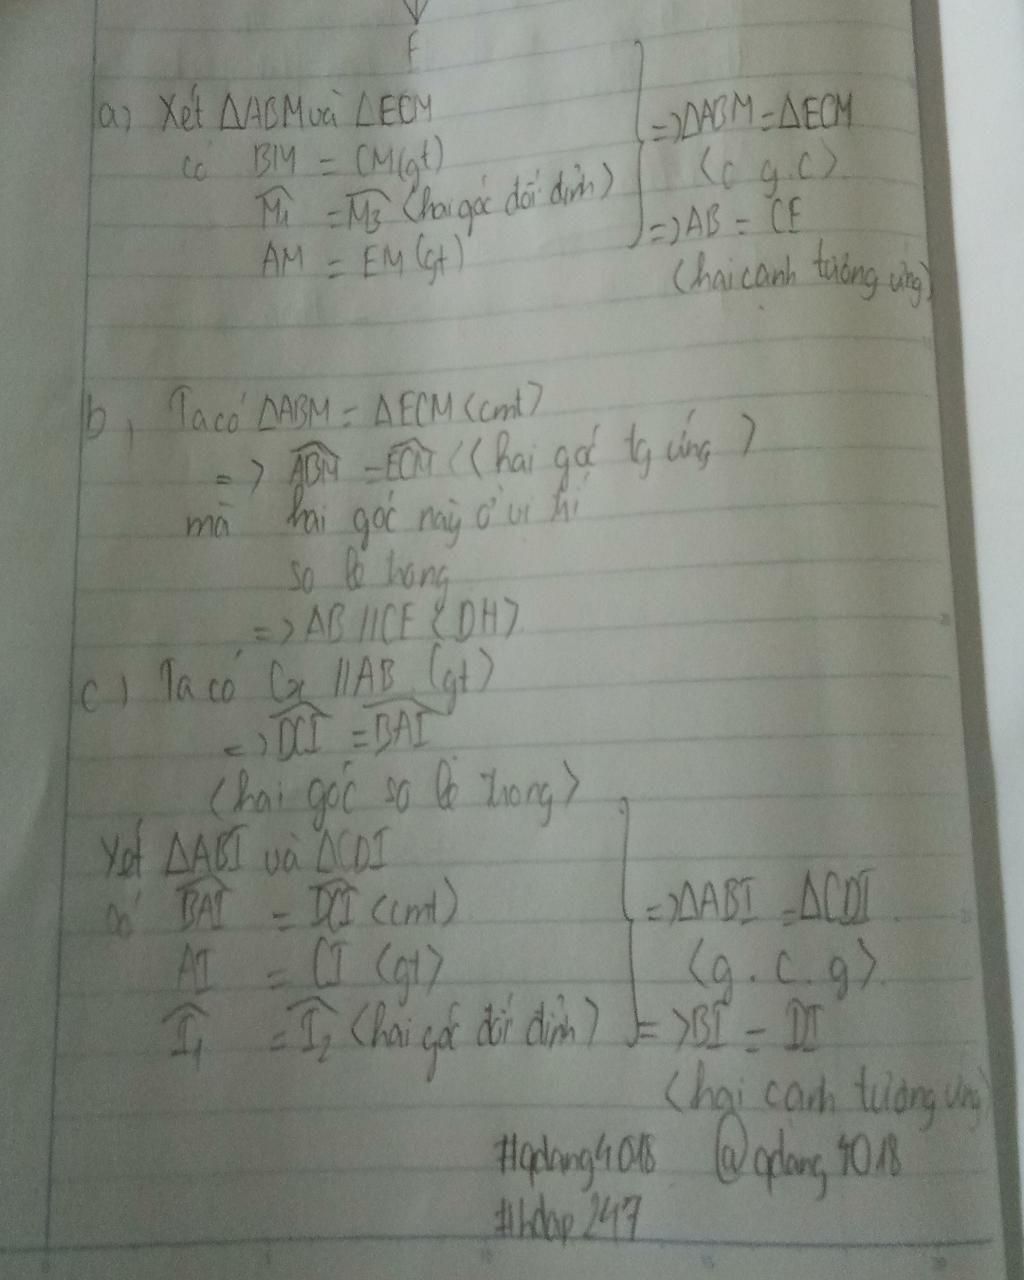 E
a) Xét ΔABM và ΔECM
có BM = CM (gt)
M̂₁ = M̂₃ (hai góc đối đỉnh)
AM = EM (gt)
=> ΔABM = ΔECM
(c g.c)
=> AB = CE
(hai cạnh tương ứng)
b, Ta có ΔABM = ΔECM (cmt)
=> ABM = ECM ((hai góc tg ứng)
mà hai góc này ở vị trí
so le trong
=> AB // CE (DH)
c) Ta có Cx // AB (gt)
=> DCI = BAI
(hai góc so le trong)
Xét ΔABI và ΔCDI
có BAI = DCI (cmt)
AI = CI (gt)
Î₁ = Î₂ (hai góc đối đỉnh)
=> ΔABI = ΔCDI
(g.c.g)
=> BI = DI
(hai cạnh tương ứng)
#qdang4018 @qdang4018
#hdap247